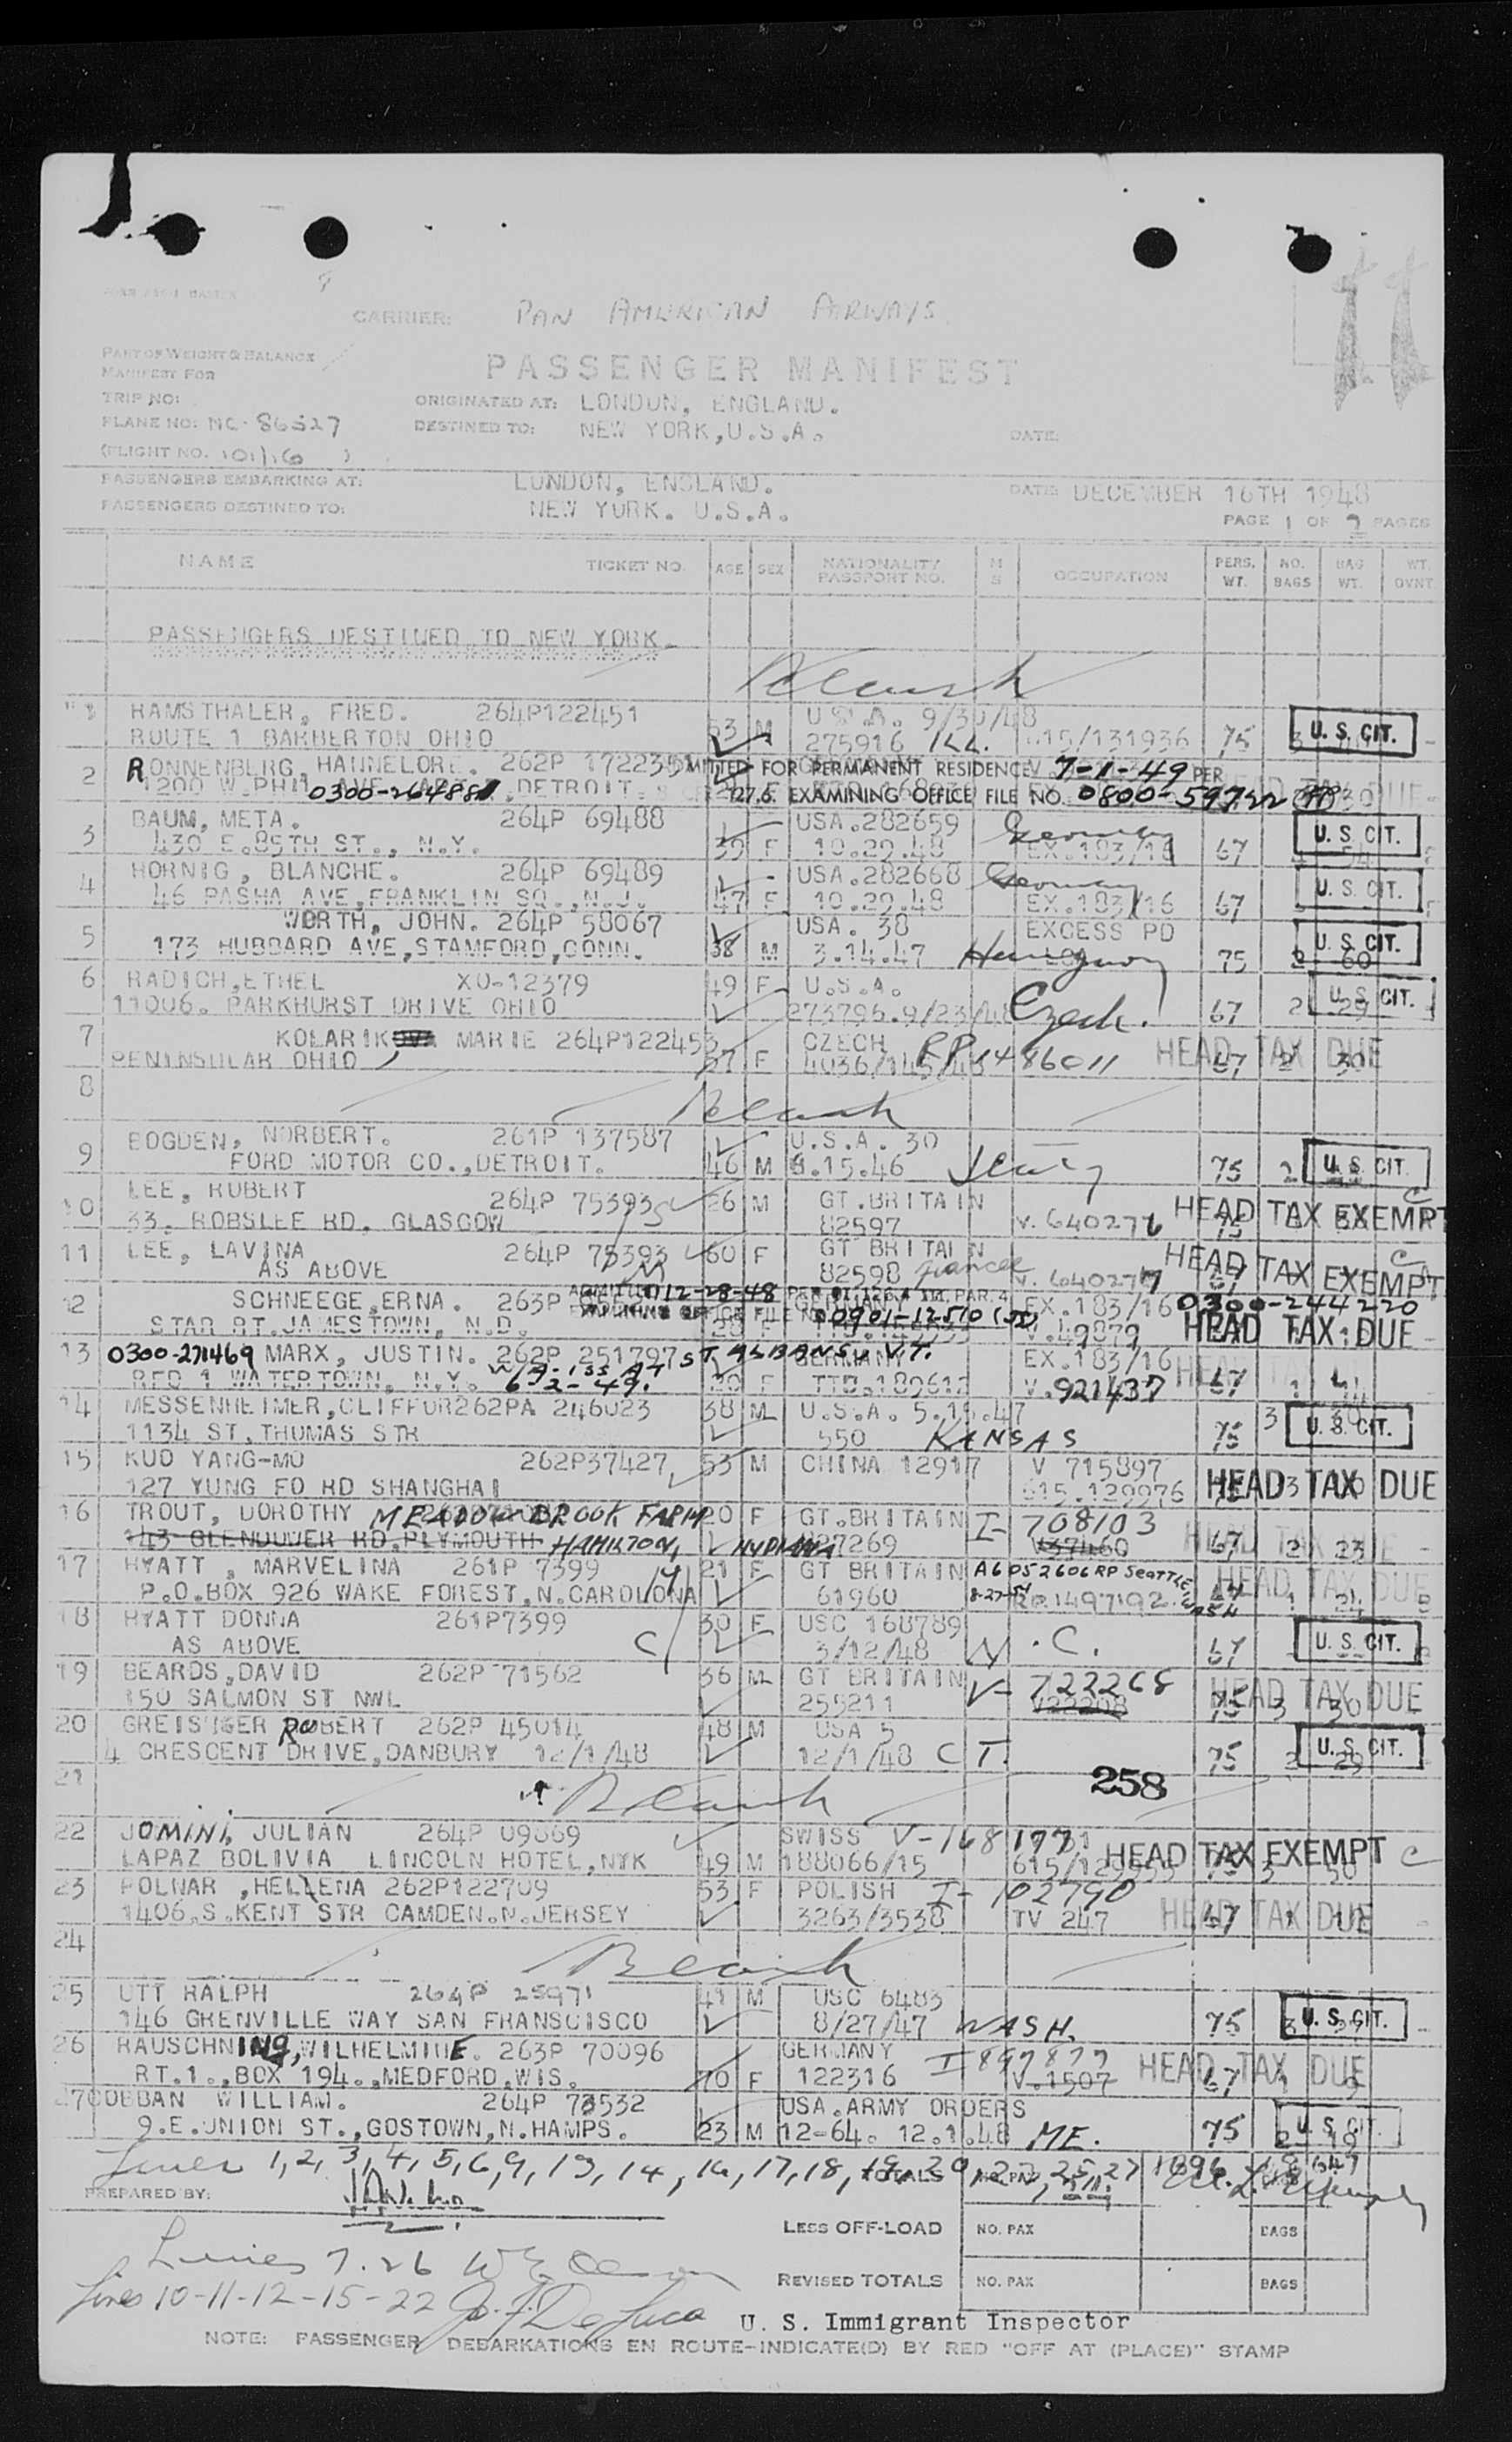 CARRIER: PAN AMERICAN AIRWAYS
PART OF WEIGHT & BALANCE
MANIFEST FOR
PASSENGER MANIFEST
TRIP NO:
ORIGINATED AT: LONDON, ENGLAND.
PLANE NO: NC-86527
DESTINED TO: NEW YORK, U.S.A.
DATE:
(FLIGHT NO. 101/16 )
PASSENGERS EMBARKING AT: LONDON, ENGLAND.
DATE: DECEMBER 16TH 1948
PASSENGERS DESTINED TO: NEW YORK. U.S.A.
PAGE 1 OF 2 PAGES
NAME TICKET NO. AGE SEX NATIONALITY PASSPORT NO. M S OCCUPATION PERS. WT. NO. BAGS BAG WT. WT. OVNT
PASSENGERS DESTINED TO NEW YORK
Blank
1 RAMSTHALER, FRED. 264P122451 53 M U.S.A. 9/30/48 U. S. CIT.
ROUTE 1 BARBERTON OHIO 275916 ILL. 615/131936 75 3
2 RONNENBERG, HANNELORE. 262P 172235 ADMITTED FOR PERMANENT RESIDENCE 7-1-49 PER
1200 W. 0300-264888 DETROIT. F 127.6. EXAMINING OFFICE FILE NO. 0800-59722
3 BAUM, META. 264P 69488 USA.282659 Germany U. S. CIT.
430 E.85TH ST., N.Y. 39 F 10.29.48 EX.183/16 67 4 54
4 HORNIG, BLANCHE. 264P 69489 USA.282668 Germany U. S. CIT.
46 PASHA AVE,FRANKLIN SQ.,N.J. 47 F 10.29.48 EX.183/16 67
5 WORTH, JOHN. 264P 58067 USA. 38 EXCESS PD U. S. CIT.
173 HUBBARD AVE,STAMFORD,CONN. 38 M 3.14.47 Hungary 75 2 60
6 RADICH,ETHEL XO-12379 49 F U.S.A. U. S. CIT.
11006. PARKHURST DRIVE OHIO 273796.9/23/48 Czech. 67 2 29
7 KOLARIKOVA MARIE 264P122453 CZECH RP 1486011 HEAD TAX DUE
PENINSULAR OHIO 57 F 4036/145/48 67 2 30
8 Blank
9 BOGDEN, NORBERT. 261P 137587 U.S.A. 30
FORD MOTOR CO.,DETROIT. 46 M 8.15.46 75 2 U. S. CIT.
10 LEE, ROBERT 264P 75393 26 M GT.BRITAIN HEAD TAX EXEMPT C
33. ROBSLEE RD. GLASGOW 82597 V. 640276 75
11 LEE, LAVINA 264P 75393 60 F GT BRITAIN HEAD TAX EXEMPT C
AS ABOVE 82598 V. 640277 67
12 SCHNEEGE,ERNA. 263P ADMITTED 12-28-48 EX.183/16 0300-244220
EXAMINING OFFICE FILE NO 0901-12510
STAR RT.JAMESTOWN, N.D. 28 F V.49879 HEAD TAX DUE
13 0300-271469 MARX, JUSTIN. 262P 251797 ST ALBANS, VT. GERMANY EX.183/16
RFD 1 WATERTOWN, N.Y. 6-2-49. 20 F V.921437 67 1
14 MESSENHEIMER,CLIFFOR262PA 246023 38 M U.S.A. 5.15.47
1134 ST.THOMAS STR 550 KANSAS 75 3 U. S. CIT.
15 KUO YANG-MO 262P37427 53 M CHINA 12917 V 715897
127 YUNG FO RD SHANGHAI 615.129976 HEAD TAX DUE
16 TROUT, DOROTHY MEADOW BROOK FARM 20 F GT.BRITAIN I-708103
143 GLENDOWER RD.PLYMOUTH HAMILTON, INDIANA 827269 V37460 67 2 23
17 HYATT , MARVELINA 261P 7399 21 F GT BRITAIN A6052606 RP SEATTLE, WASH HEAD TAX DUE
P.O.BOX 926 WAKE FOREST,N.CAROLONA 61960 8-27-51 RP.1497192 67 1 24
18 HYATT DONNA 261P7399 30 F USC 168789
AS ABOVE 3/12/48 N.C. 67 U. S. CIT.
19 BEARDS,DAVID 262P 71562 36 M GT BRITAIN V-722268
150 SALMON ST NWL 255211 V22208 75 3 30 HEAD TAX DUE
20 GREISINGER ROBERT 262P 45014 48 M USA 5
4 CRESCENT DRIVE,DANBURY 12/1/48 12/1/48 CT. 75 2 29 U. S. CIT.
21 Blank 258
22 JOMINI, JULIAN 264P 09669 SWISS V-168177
LAPAZ BOLIVIA LINCOLN HOTEL,NYK 49 M 188066/15 HEAD TAX EXEMPT C
23 POLNAR ,HELLENA 262P122709 53 F POLISH I-102790
1406.S.KENT STR CAMDEN.N.JERSEY 3263/3538 TV 247 67 HEAD TAX DUE
24 Blank
25 UTT RALPH 264P 25971 41 M USC 6483
146 GRENVILLE WAY SAN FRANSCISCO 8/27/47 WASH. 75 3 U. S. CIT.
26 RAUSCHNING,WILHELMINE. 263P 70096 GERMANY I 897877 HEAD TAX DUE
RT.1.,BOX 194.,MEDFORD,WIS. 70 F 122316 V.1507 67 1 9
27 COBBAN WILLIAM. 264P 73532 USA.ARMY ORDERS
9.E.UNION ST.,GOSTOWN,N.HAMPS. 23 M 12-64. 12.1.48 ME. 75 2 19 U. S. CIT.
Lines 1,2,3,4,5,6,9,13,14,16,17,18,19,20,23,25,27
TOTALS NO. PAX
PREPARED BY:
LESS OFF-LOAD NO. PAX BAGS
Lines 7.26
REVISED TOTALS NO. PAX BAGS
Lines 10-11-12-15-22 J. F. DeLuca
U. S. Immigrant Inspector
NOTE: PASSENGER DEBARKATIONS EN ROUTE-INDICATE(D) BY RED "OFF AT (PLACE)" STAMP